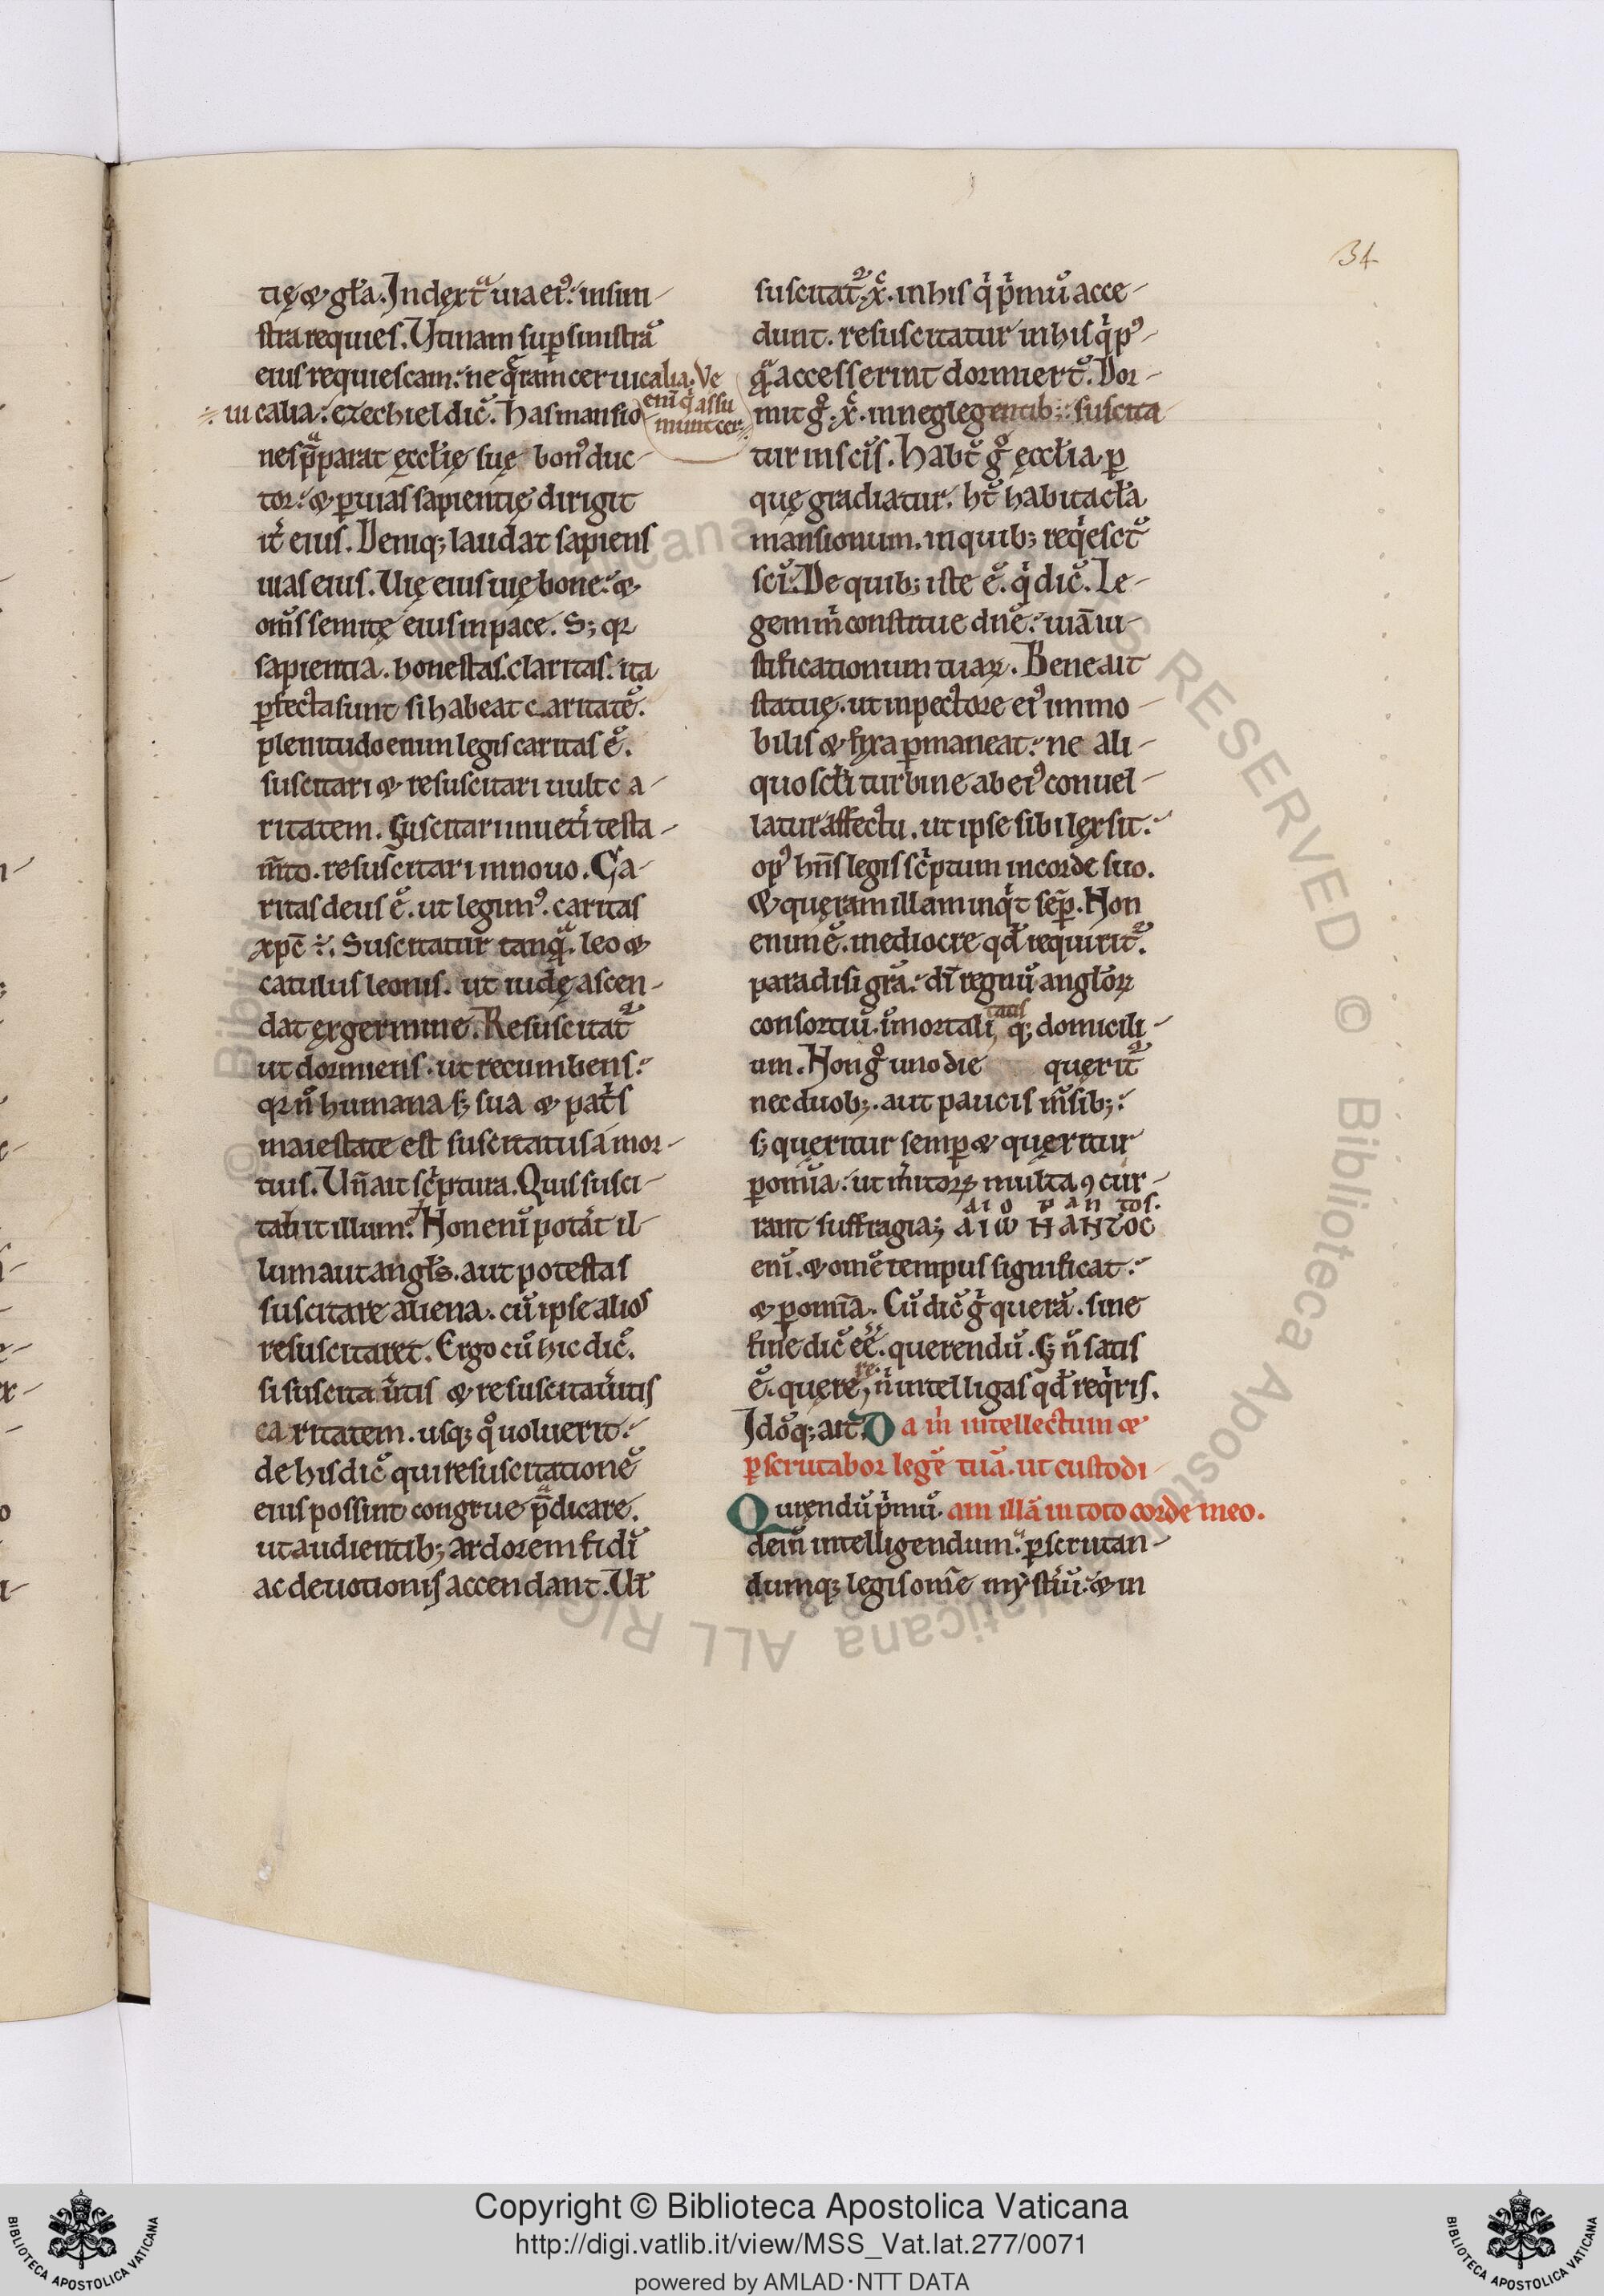 34
tię & gl̃a. In dęxt̃a uia ei᷒: in sini-
stra requies. Utinam sup̱ sinistrā
eius requiescam: ne q̃ram ceruicalia. Ve
enī q̇ assu
munt cer
uicalia: ezechiel dic̃. has mansio
nes p̃parat ęccl̃ię suę bon᷒ duc-
tor: & p̱ uias sapientię dirigit
it̃ eius. Deniq; laudat sapiens
uias eius. Uię eius uię bone: &
om̃s semitę eius in pace. S; qꝛ
sapientia. honestas. claritas. ita
p̱fecta sunt si habeat caritatē.
plenitudo enim legis caritas ē.
suscitari & resuscitari uult ca-
ritatem. Suscitari in uet̃i testa-
m̃to. resuscitari in nouo. Ca-
ritas deus ē. ut legim᷒. caritas
xpc̄ ÷. Suscitatur tanq̃. leo &
catulus leonis. ut iudę ascen-
dat ęx germine. Resuscitat᷑
ut dormiens. ut recumbens:
qꝛ ñ humana s; sua & pat̃s
maiestate est suscitatus a mor-
tuis. Uñ ait sc̃ptura. Quis susci-
tabit illum? Non enī potãt il-
lum aut angl̃s. aut potestas
suscitare aliena. cū ipse alios
resuscitaret. Ergo cū hic dic̃.
si suscitaũtis & resuscitaũtis
caritatem. usq; q̊ uoluerit:
de his dic̃ qui resuscitationē
eius possint congrue p̃dicare.
ut audientib; ardorem fidī
ac deuotionis accendant. Ul̃
suscitat᷑. x̃. in his q̇ ṗmū acce-
dunt. resuscitatur in his q̇ p᷒-
q̃. accesserint dormiert̃. Dor-
mit g̊. x̃. in neglegentib;: suscita
tur in sc̃is. Habt̃ g̊ ęccl̃ia. p̱
quę gradiatur. ht̃ habitacl̃a
mansionum. in quib; req̇esct̃
sc̃i. De quib; iste ē. q̇ dic̃. Le-
gem ṁ constitue dñe: uiā iu-
stificationum tuaꝝ. Bene ait
statuę. ut in pectore ei᷒ immo-
bilis & fyxa p̱maneat: ne ali-
quo scl̃i turbine ab ei᷒ conuel-
latur affectu. ut ipse sibi lęx sit:
op᷒ hñs legis sc̃ptum in corde suo.
& quęram illam inq̇t sep̃. Non
enim ē. mediocre qđ requirit᷑.
paradisi gr̃a: dĩ regnū angl̃oꝝ
consortiū. īmortalitatisq; domicili-
um. Non g̊ uno die quęrit᷑
nec duob;. aut paucis m̃sib;:
s; quęritur semp̱ & quęritur
p̱ omĩa: ut m̃itoꝝ multa ꝯcur-
aio pan tos.
rant suffragia; ΔΙω ΠΑΝΤΟC
enī. & omē tempus significat:
& p̱ omĩa. Cū dic̃ g̊ querā. sine
fine dic̃ ēē. querendū. S; ñ satis
ē. quęrere, n̄ intelligas qđ req̇ris.
Idõq; ait. Da ṁ intellectum &
p̱scrutabor legē tuā. ut custodi
Quręndū ṗmū. am illā in toto corde meo.
deiñ intelligendum: p̱scrutan-
dumq; legis omē mẏst̃iū: & in
Copyright © Biblioteca Apostolica Vaticana
http://digi.vatlib.it/view/MSS_Vat.lat.277/0071
powered by AMLAD·NTT DATA